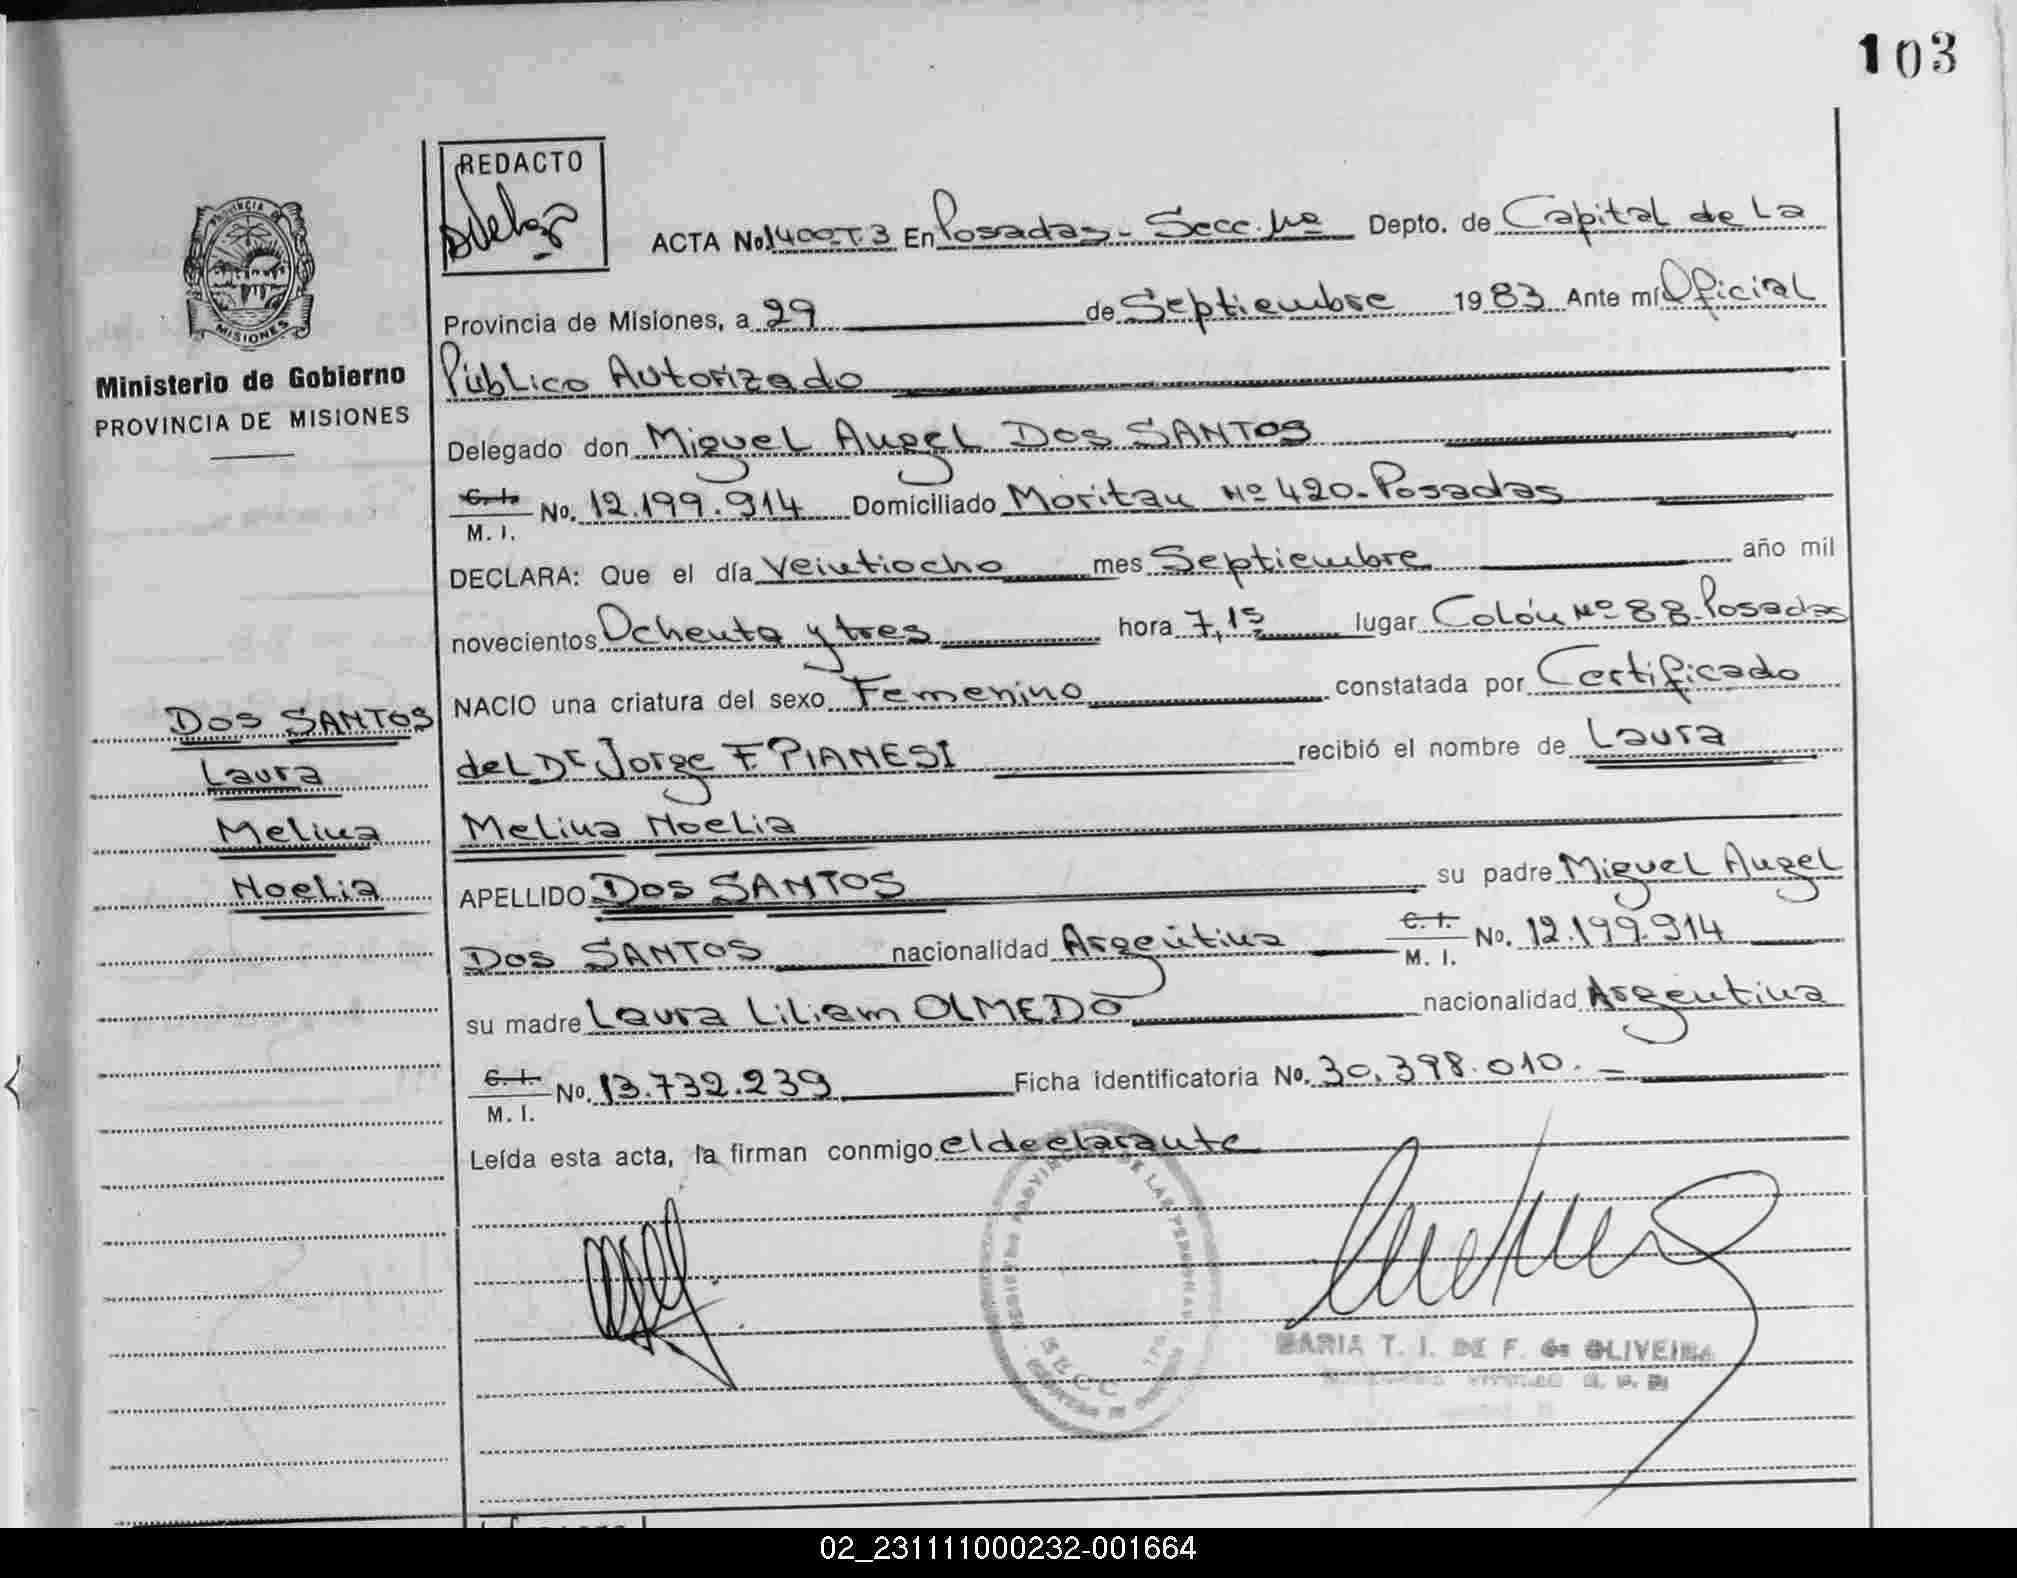 103
REDACTO
ACTA No. 1400-T.3 En Posadas - Secc. 1ra Depto. de Capital de La
Provincia de Misiones, a 29 de Septiembre 1983 Ante mí Oficial
Público Autorizado
Delegado don Miguel Angel Dos SANTOS
C. I.
M. I. No. 12.199.914 Domiciliado Moritan Nº 420-Posadas
DECLARA: Que el día Veintiocho mes Septiembre año mil
novecientos Ochenta y tres hora 7,15 lugar Colón Nº 88-Posadas
NACIO una criatura del sexo Femenino constatada por Certificado
del Dr Jorge F PIANESI recibió el nombre de Laura
Melina Noelia
APELLIDO Dos SANTOS su padre Miguel Angel
Dos SANTOS nacionalidad Argentina C. I. M. I. No. 12.199.914
su madre Laura Liliam OLMEDO nacionalidad Argentina
C. I.
M. I. No. 13.732.239 Ficha identificatoria No. 30.398.010.-
Leída esta acta, la firman conmigo el declarante
PROVINCIA DE
MISIONES
Ministerio de Gobierno
PROVINCIA DE MISIONES
Dos SANTOS
Laura
Melina
Noelia
SECC. 1ra
MARIA T. I. DE F. de OLIVEIRA
02_231111000232-001664